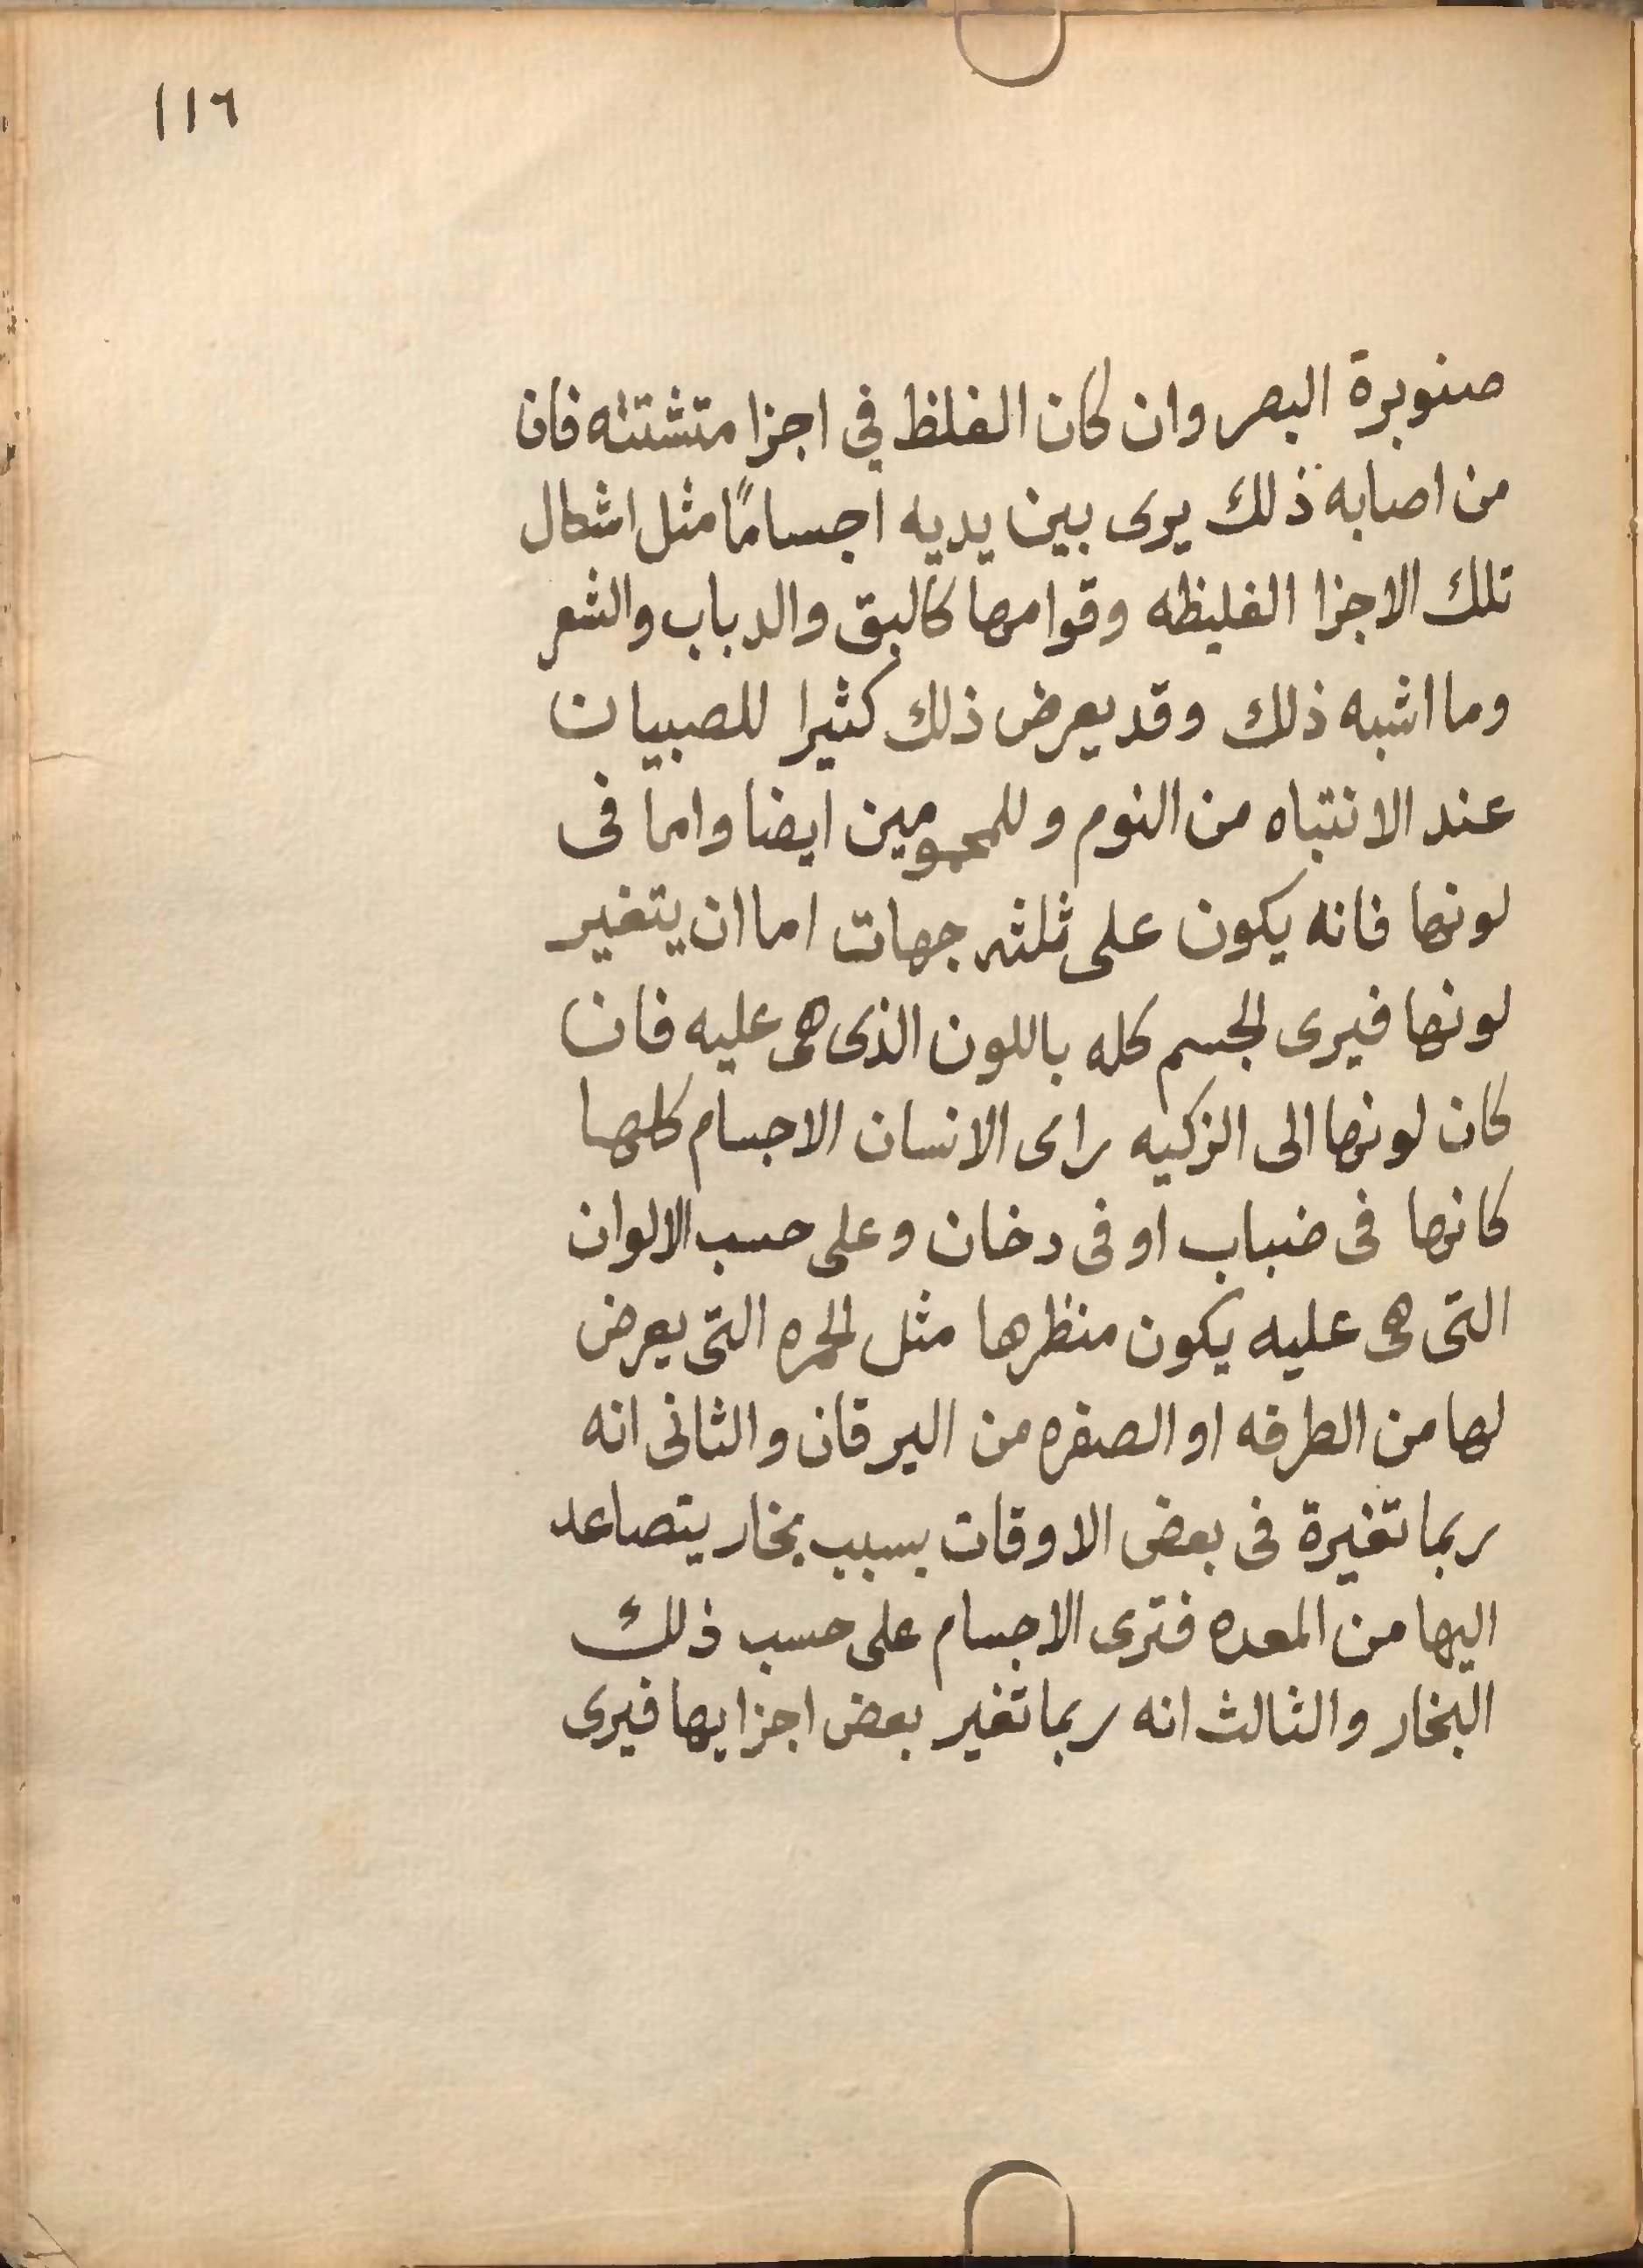 ١١٦
صنوبرة البصر وان كان الغلظ في اجزا متشتته فان
من اصابه ذلك يرى بين يديه اجسامًا مثل اشكال
تلك الاجزا الغليظه وقوامها كالبق والدباب والشعر
وما اشبه ذلك وقد يعرض ذلك كثيرا للصبيان
عند الانتباه من النوم وللمحمومين ايضا واما فى
لونها فانه يكون على ثلثه جهات اما ان يتغير
لونها فيرى الجسم كله باللون الذى هى عليه فان
كان لونها الى الزكيه راى الانسان الاجسام كلها
كانها فى ضباب او فى دخان وعلى حسب الالوان
التى هى عليه يكون منظرها مثل الحمره التى يعرض
لها من الطرفه او الصفره من اليرقان والثانى انه
ربما تغيرة فى بعض الاوقات بسبب بخار يتصاعد
اليها من المعده فترى الاجسام على حسب ذلك
البخار والثالث انه ربما تغير بعض اجزايها فيرى